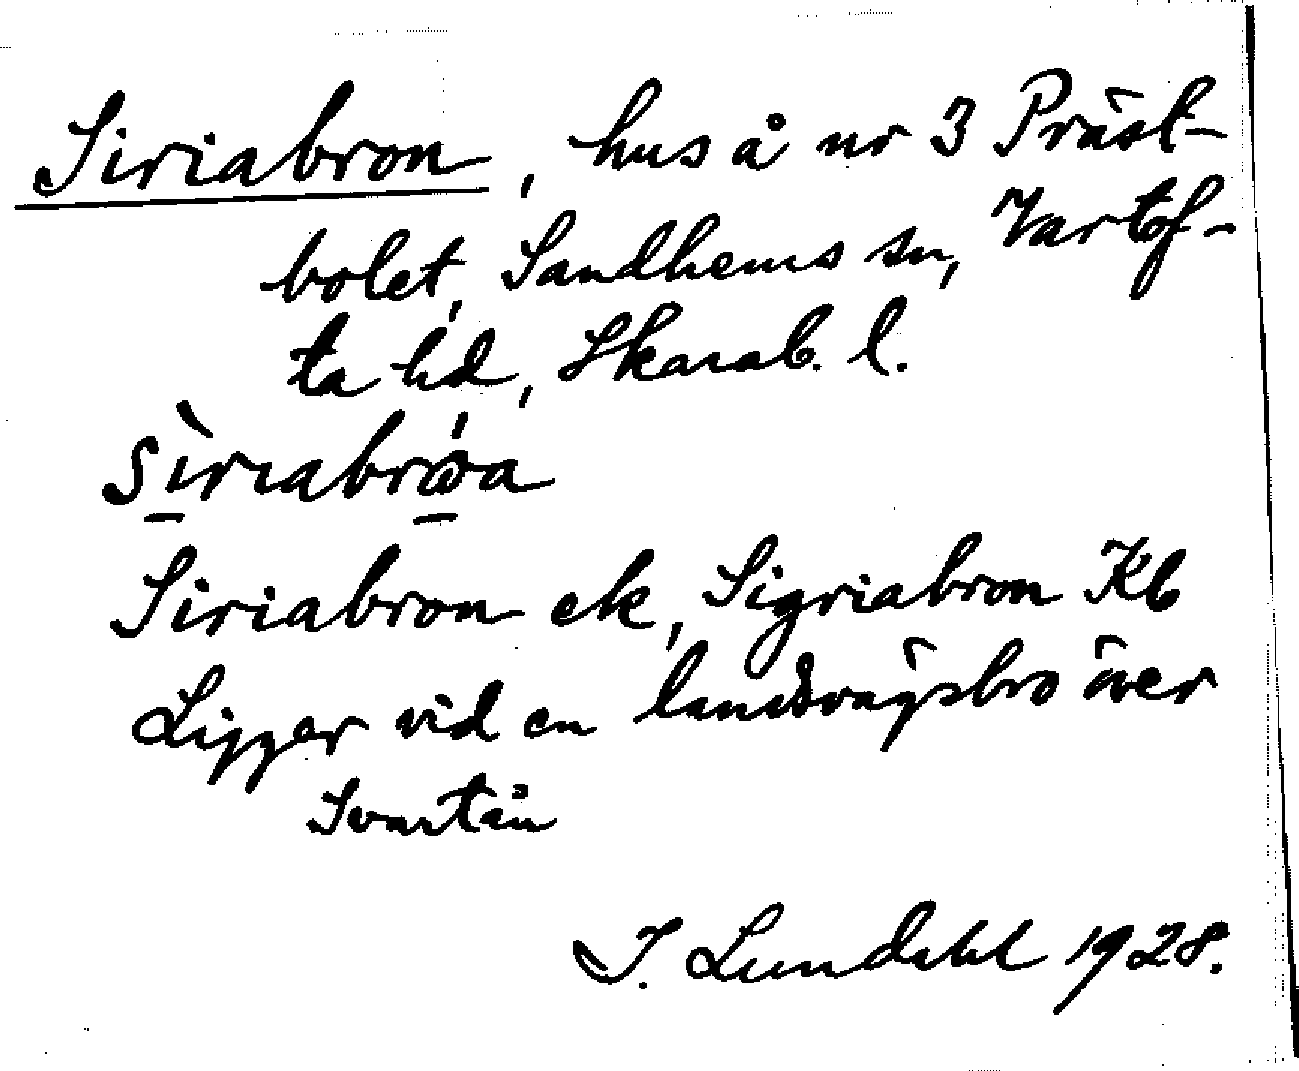 Siriabron, hus å nr 3 Präst-
bolet, Sandhems sn, Vartof-
ta hd, Skarab. l.
Siriabron ek, Sigriabron Kb
Ligger vid en landsvägsbro över
Svartån
I. Lundahl 1928.